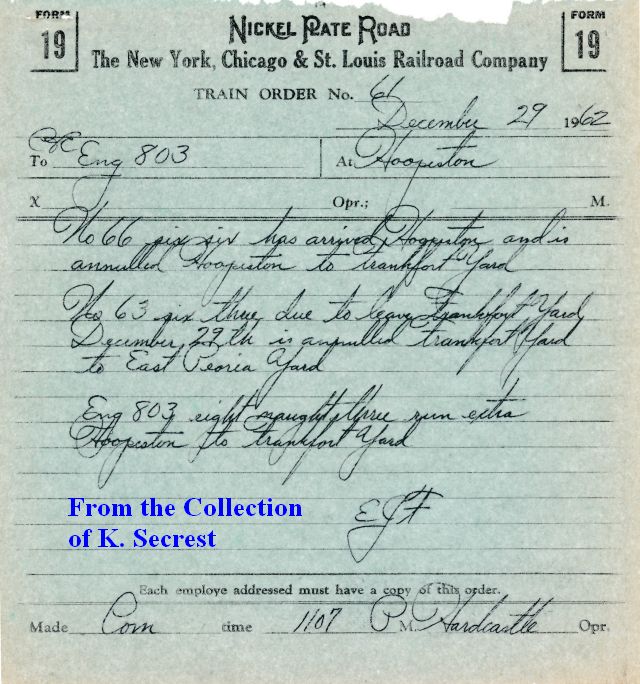 FORM 19
NICKEL PLATE ROAD
FORM 19
The New York, Chicago & St. Louis Railroad Company
TRAIN ORDER No. 61
December 29 1962
C&E
To Eng 803 At Hoopeston
X Opr.; M.
No 66 six six has arrived Hoopeston and is
annulled Hoopeston to Frankfort Yard
No 63 six three due to leave Frankfort Yard
December 29th is annulled Frankfort Yard
to East Peoria Yard
Eng 803 eight naught three run extra
Hoopeston to Frankfort Yard
From the Collection
of K. Secrest
EJF
Each employe addressed must have a copy of this order.
Made Com time 1107 P M. Hardcastle Opr.